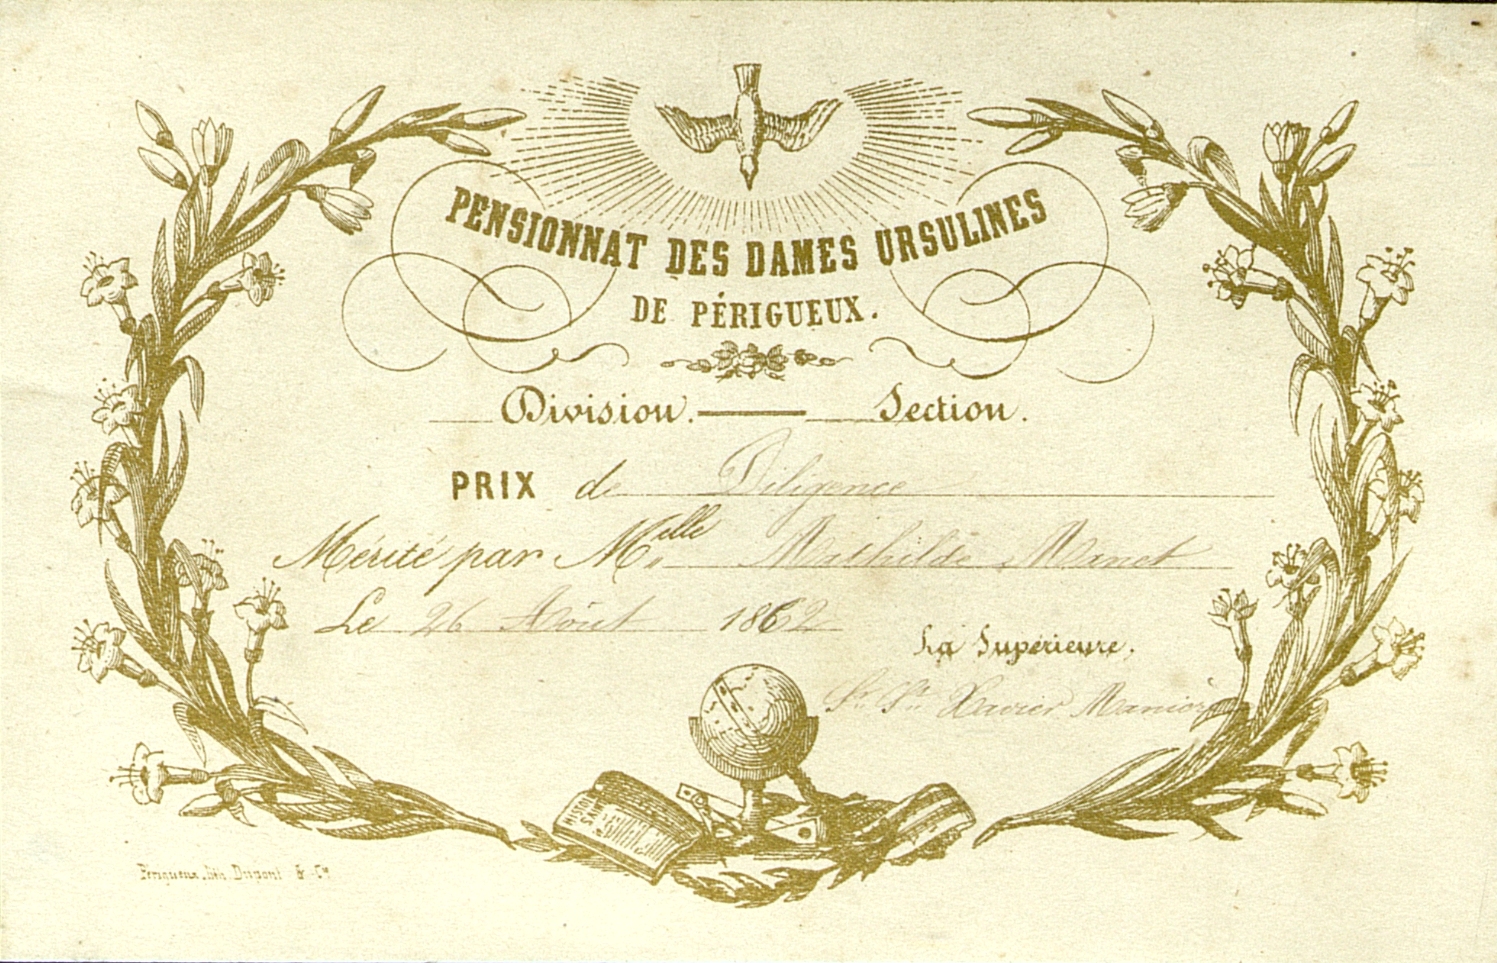 PENSIONNAT DES DAMES URSULINES
DE PÉRIGUEUX.
Division. Section.
PRIX de Diligence
Mérité par Melle Mathilde Manet
Le 26 Août 1862
La Supérieure.
Sr St Xavier
HISTOIRE SAINTE
Périgueux, lith. Dupont & Cie